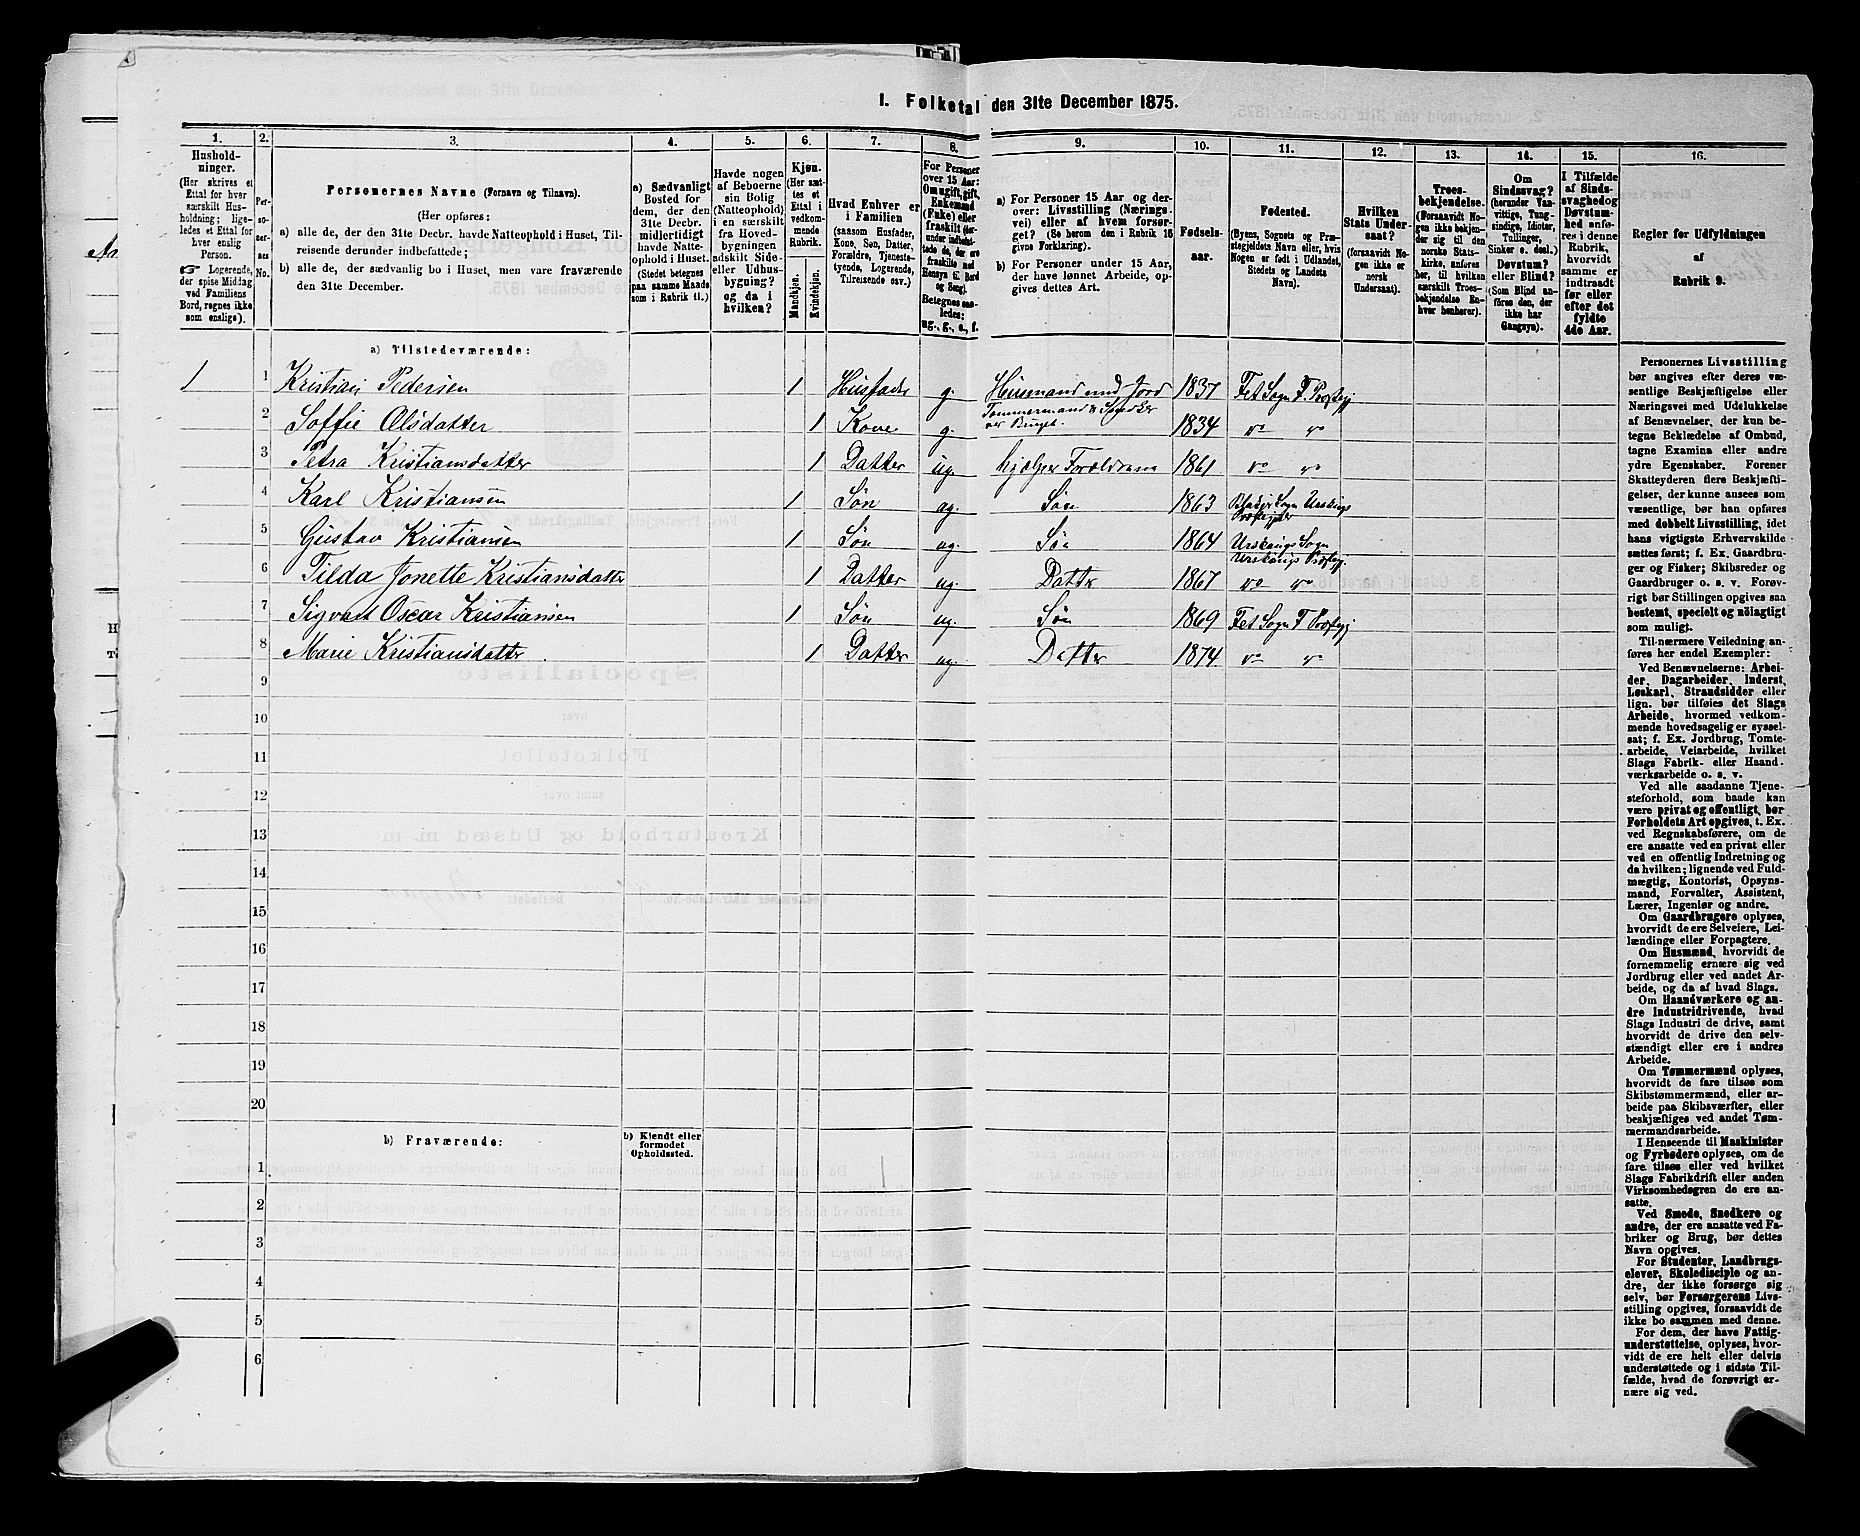 1. Folketal den 31te December 1875.
1. 2. 3. 4. 5. 6. 7. 8. 9. 10. 11. 12. 13. 14. 15. 16.
Hushold-
ninger.
(Her skrives et
Ettal for hver
særskilt Hus-
holdning; lige-
ledes et Ettal for
hver enslig
Person.
☞ Logerende,
der spise Middag
ved Familiens
Bord, regnes ikke
som enslige).
Per-
so-
ner-
nes
No.
Personernes Navne (Fornavn og Tilnavn).
(Her opføres:
a) alle de, der den 31te Decbr. havde Natteophold i Huset, Til-
reisende derunder indbefattede;
b) alle de, der sædvanlig bo i Huset, men vare fraværende
den 31te December.
a) Sædvanligt
Bosted for
dem, der den
31te Decbr.
midlertidigt
havde Natte-
ophold i Huset.
(Stedet betegnes
paa samme Maade
som i Rubrik 11.)
Havde nogen
af Beboerne
sin Bolig
(Natteophold)
i en særskilt
fra Hoved-
bygningen
adskilt Side-
eller Udhus-
bygning?
og da i
hvilken?
Kjøn.
(Her sæt-
tes et
Ettal i
vedkom-
mende
Rubrik.
Mandkjøn.
Kvindekjøn.
Hvad Enhver er
i Familien
(saasom Husfader,
Kone, Søn, Datter,
Forældre, Tjeneste-
tyende, Logerende,
Tilreisende osv.)
For Personer
over 15 Aar:
Om ugift, gift,
Enkemand
(Enke) eller
fraskilt (her-
under indbefat-
tede de, der ere
fraskilte med
Hensyn til Bord
og Seng)
Betegnes saa-
ledes:
ug., g., e., f.
a) For Personer 15 Aar og der-
over: Livsstilling (Nærings-
vei) eller af hvem forsør-
get? (Se herom den i Rubrik 16
givne Forklaring).
b) For Personer under 15 Aar,
der have lønnet Arbeide, op-
gives dettes Art.
Fødsels-
aar.
Fødested.
(Byens, Sognets og Præ-
stegjeldets Navn eller, hvis
Nogen er født i Udlandet,
Stedets og Landets
Navn).
Hvilken
Stats Under-
saat?
(forsaavidt No-
gen ikke er
norsk
Undersaat).
Troes-
bekjendelse.
(Forsaavidt No-
gen ikke bekjen-
der sig til den
norske Stats-
kirke, anføres
her, til hvilken
særskilt Troes-
bekjendelse En-
hver henhører).
Om
Sindssvag?
(herunder Van-
vittige, Tung-
sindige, Idioter,
Tullinger,
Sinker o. desl.)
Døvstum?
eller Blind?
(Som Blind an-
føres den, der
ikke har
Gangsyn).
I Tilfælde
af Sinds-
svaghed og
Døvstum-
hed anfø-
res i denne
Rubrik,
hvorvidt
samme er
indtraadt
før eller
efter det
fyldte
4de Aar.
Regler for Udfyldningen
af
Rubrik 9.
a) Tilstedeværende:
1 1 Kristian Pedersen 1 Husfader g. Husmand med Jord 1837 Fet Sogn F. Præstegj.
Tømmermand & Snedker
2 Soffie Olsdatter 1 Kone g. 1834 do do
3 Petra Kristiansdatter 1 Datter ug. hjelper Forældrene 1861 do do
4 Karl Kristiansen 1 Søn ug. Søn 1863 Blakjer Sogn Urskougs
5 Gustav Kristiansen 1 Søn ug. Søn 1864 Urskougs Sogn
Urskougs Præstegj.
6 Tilda Jonette Kristiansdatter 1 Datter ug. Datter 1867 do do
7 Sigvart Oscar Kristiansen 1 Søn ug. Søn 1869 Fet Sogn F Præstegj
8 Marie Kristiansdatter 1 Datter ug. Datter 1874 do do
9
10
11
12
13
14
15
16
17
18
19
20
b) Fraværende:
b) Kjendt eller
formodet
Opholdssted.
1
2
3
4
5
6
Personernes Livsstilling
bør angives efter deres væ-
sentlige Beskjæftigelse eller
Næringsvei med Udelukkelse
af Benævnelser, der kun be-
tegne Beklædelse af Ombud,
tagne Examina eller andre
ydre Egenskaber. Forener
Skatteyderen flere Beskjæfti-
gelser, der kunne ansees som
væsentlige, bør han opføres
med dobbelt Livsstilling, idet
hans vigtigste Erhvervskilde
sættes først; f. Ex. Gaardbru-
ger og Fisker; Skibsreder og
Gaardbruger o. s. v. Forøv-
rigt bør Stillingen opgives saa
bestemt, specielt og nøiagtigt
som muligt.
Til nærmere Veiledning an-
føres her endel Exempler:
Ved Benævnelserne: Arbei-
der, Dagarbeider, Inderst,
Løskarl, Strandsidder eller
lign. bør tilføies det Slags
Arbeide, hvormed vedkom-
mende hovedsagelig er syssel-
sat; f. Ex. Jordbrug, Tomte-
arbeide, Veiarbeide, hvilket
Slags Fabrik- eller Haand-
værksarbeide o. s. v.
Ved alle saadanne Tjene-
steforhold, som baade kan
være privat og offentligt, bør
Forholdets Art opgives, t. Ex.
ved Regnskabsførere, om de
ere ansatte ved en privat eller
ved en offentlig Indretning og
da hvilken; lignende ved Fuld-
mægtig, Kontorist, Opsyns-
mand, Forvalter, Assistent,
Lærer, Ingeniør og andre.
Om Gaardbrugere oplyses,
hvorvidt de ere Selveiere, Lei-
lændinge eller Forpagtere.
Om Husmænd, hvorvidt de
fornemmelig ernære sig ved
Jordbrug eller ved andet Ar-
beide, og da af hvad Slags.
Om Haandværkere og an-
dre Industridrivende, hvad
Slags Industri de drive, samt
hvorvidt de drive den selv-
stændigt eller ere i andres
Arbeide.
Om Tømmermænd oplyses,
hvorvidt de fare tilsøs som
Skibstømmermænd, eller ar-
beide paa Skibsværfter, eller
beskjæftiges ved andet Tøm-
mermandsarbeide.
I Henseende til Maskinister
og Fyrbødere oplyses, om de
fare tilsøs eller ved hvilket
Slags Fabrikdrift eller anden
Virksomhedsgren de ere an-
satte.
Ved Smede, Snedkere og
andre, der ere ansatte ved Fa-
briker og Brug, bør dettes
Navn opgives.
For Studenter, Landbrugs-
elever, Skoledisciple og an-
dre, der ikke forsørge sig
selv, bør Forsørgerens Livs-
stilling opgives, forsaavidt de
ikke bo sammen med denne.
For dem, der have Fattig-
understøttelse, oplyses, hvor-
vidt de ere helt eller delvis
understøttede og i sidste Til-
fælde, hvad de forøvrigt er-
nære sig ved.